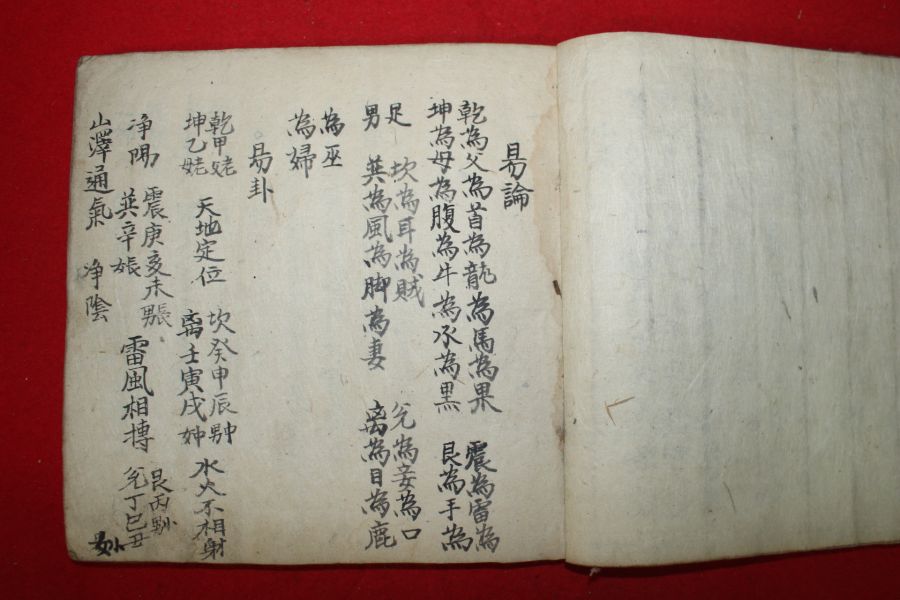 易論
乾為父為首為龍為馬為果 震為雷為
坤為母為腹為牛為水為黑 艮為手為
足 坎為耳為賊 兌為妾為口
男 巽為風為脚為妻 离為目為鹿
為巫
為婦
易卦
乾甲姥 天地定位 坎癸申辰 水火不相射
坤乙姥 离壬寅戌妕
净陽 震庚亥未 雷風相搏 艮丙
巽辛 兌丁巳丑
山澤通氣 净陰